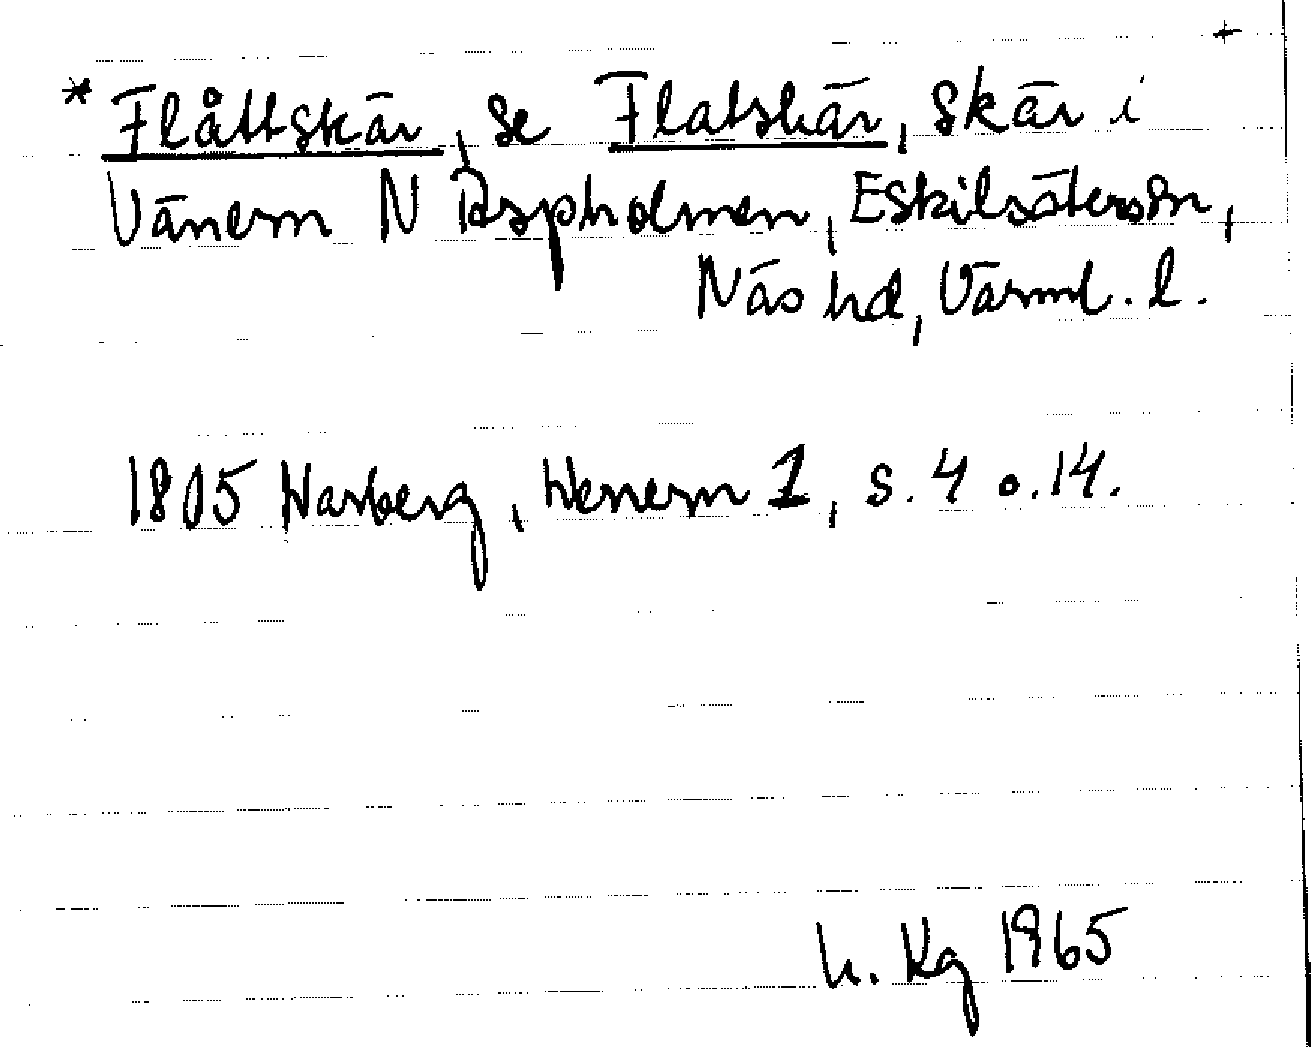 +
* Flåttskär, se Flatskär, skär i
Vänern N Aspholmen, Eskilsäters sn,
Näs hd, Värml. l.
1805 Warberg, Wenern 1, s. 4 o. 14.
h. Kg 1965